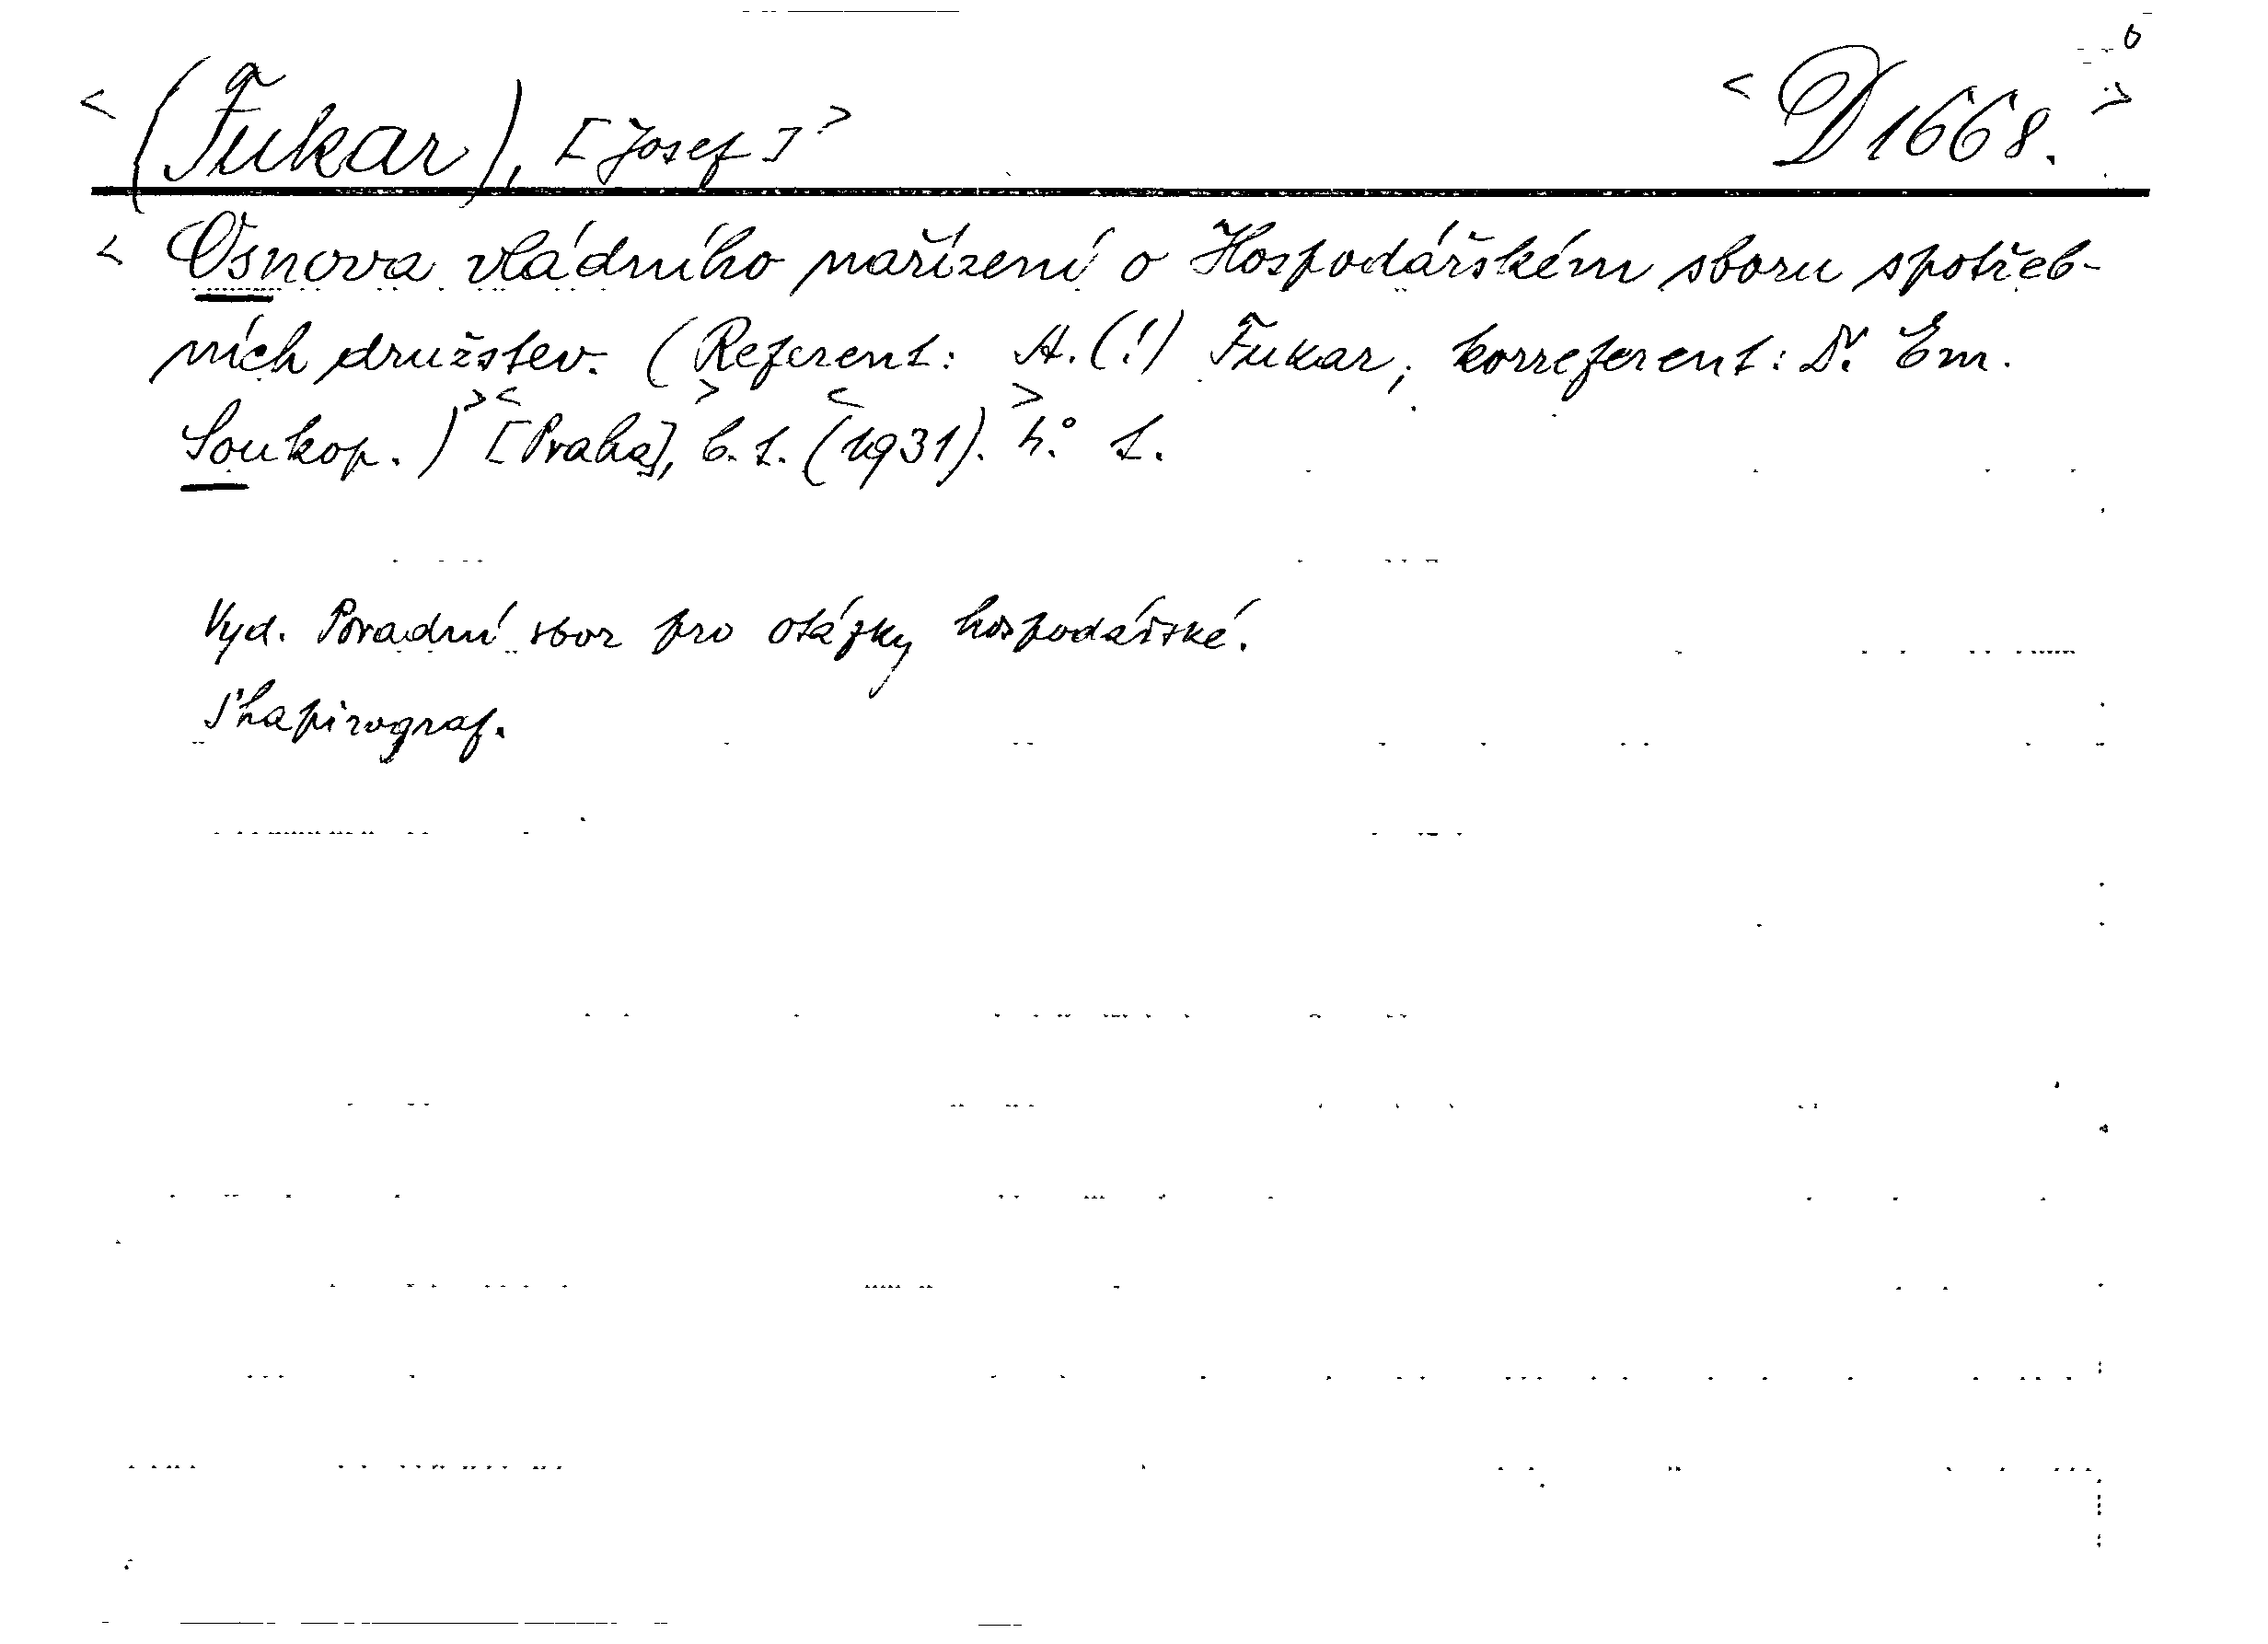 <(Fukar), [Josef]> <D 1668.>
6
< Osnova vládního nařízení o Hospodářském sboru spotřeb-
ních družstev. (Referent: A.(!) Fukar, korreferent: Dr. Em.
Soukop.)> <[Praha],> b. t. <(1931).> 4° 1.
Vyd. Poradní sbor pro otázky hospodářské.
Shapirograf.